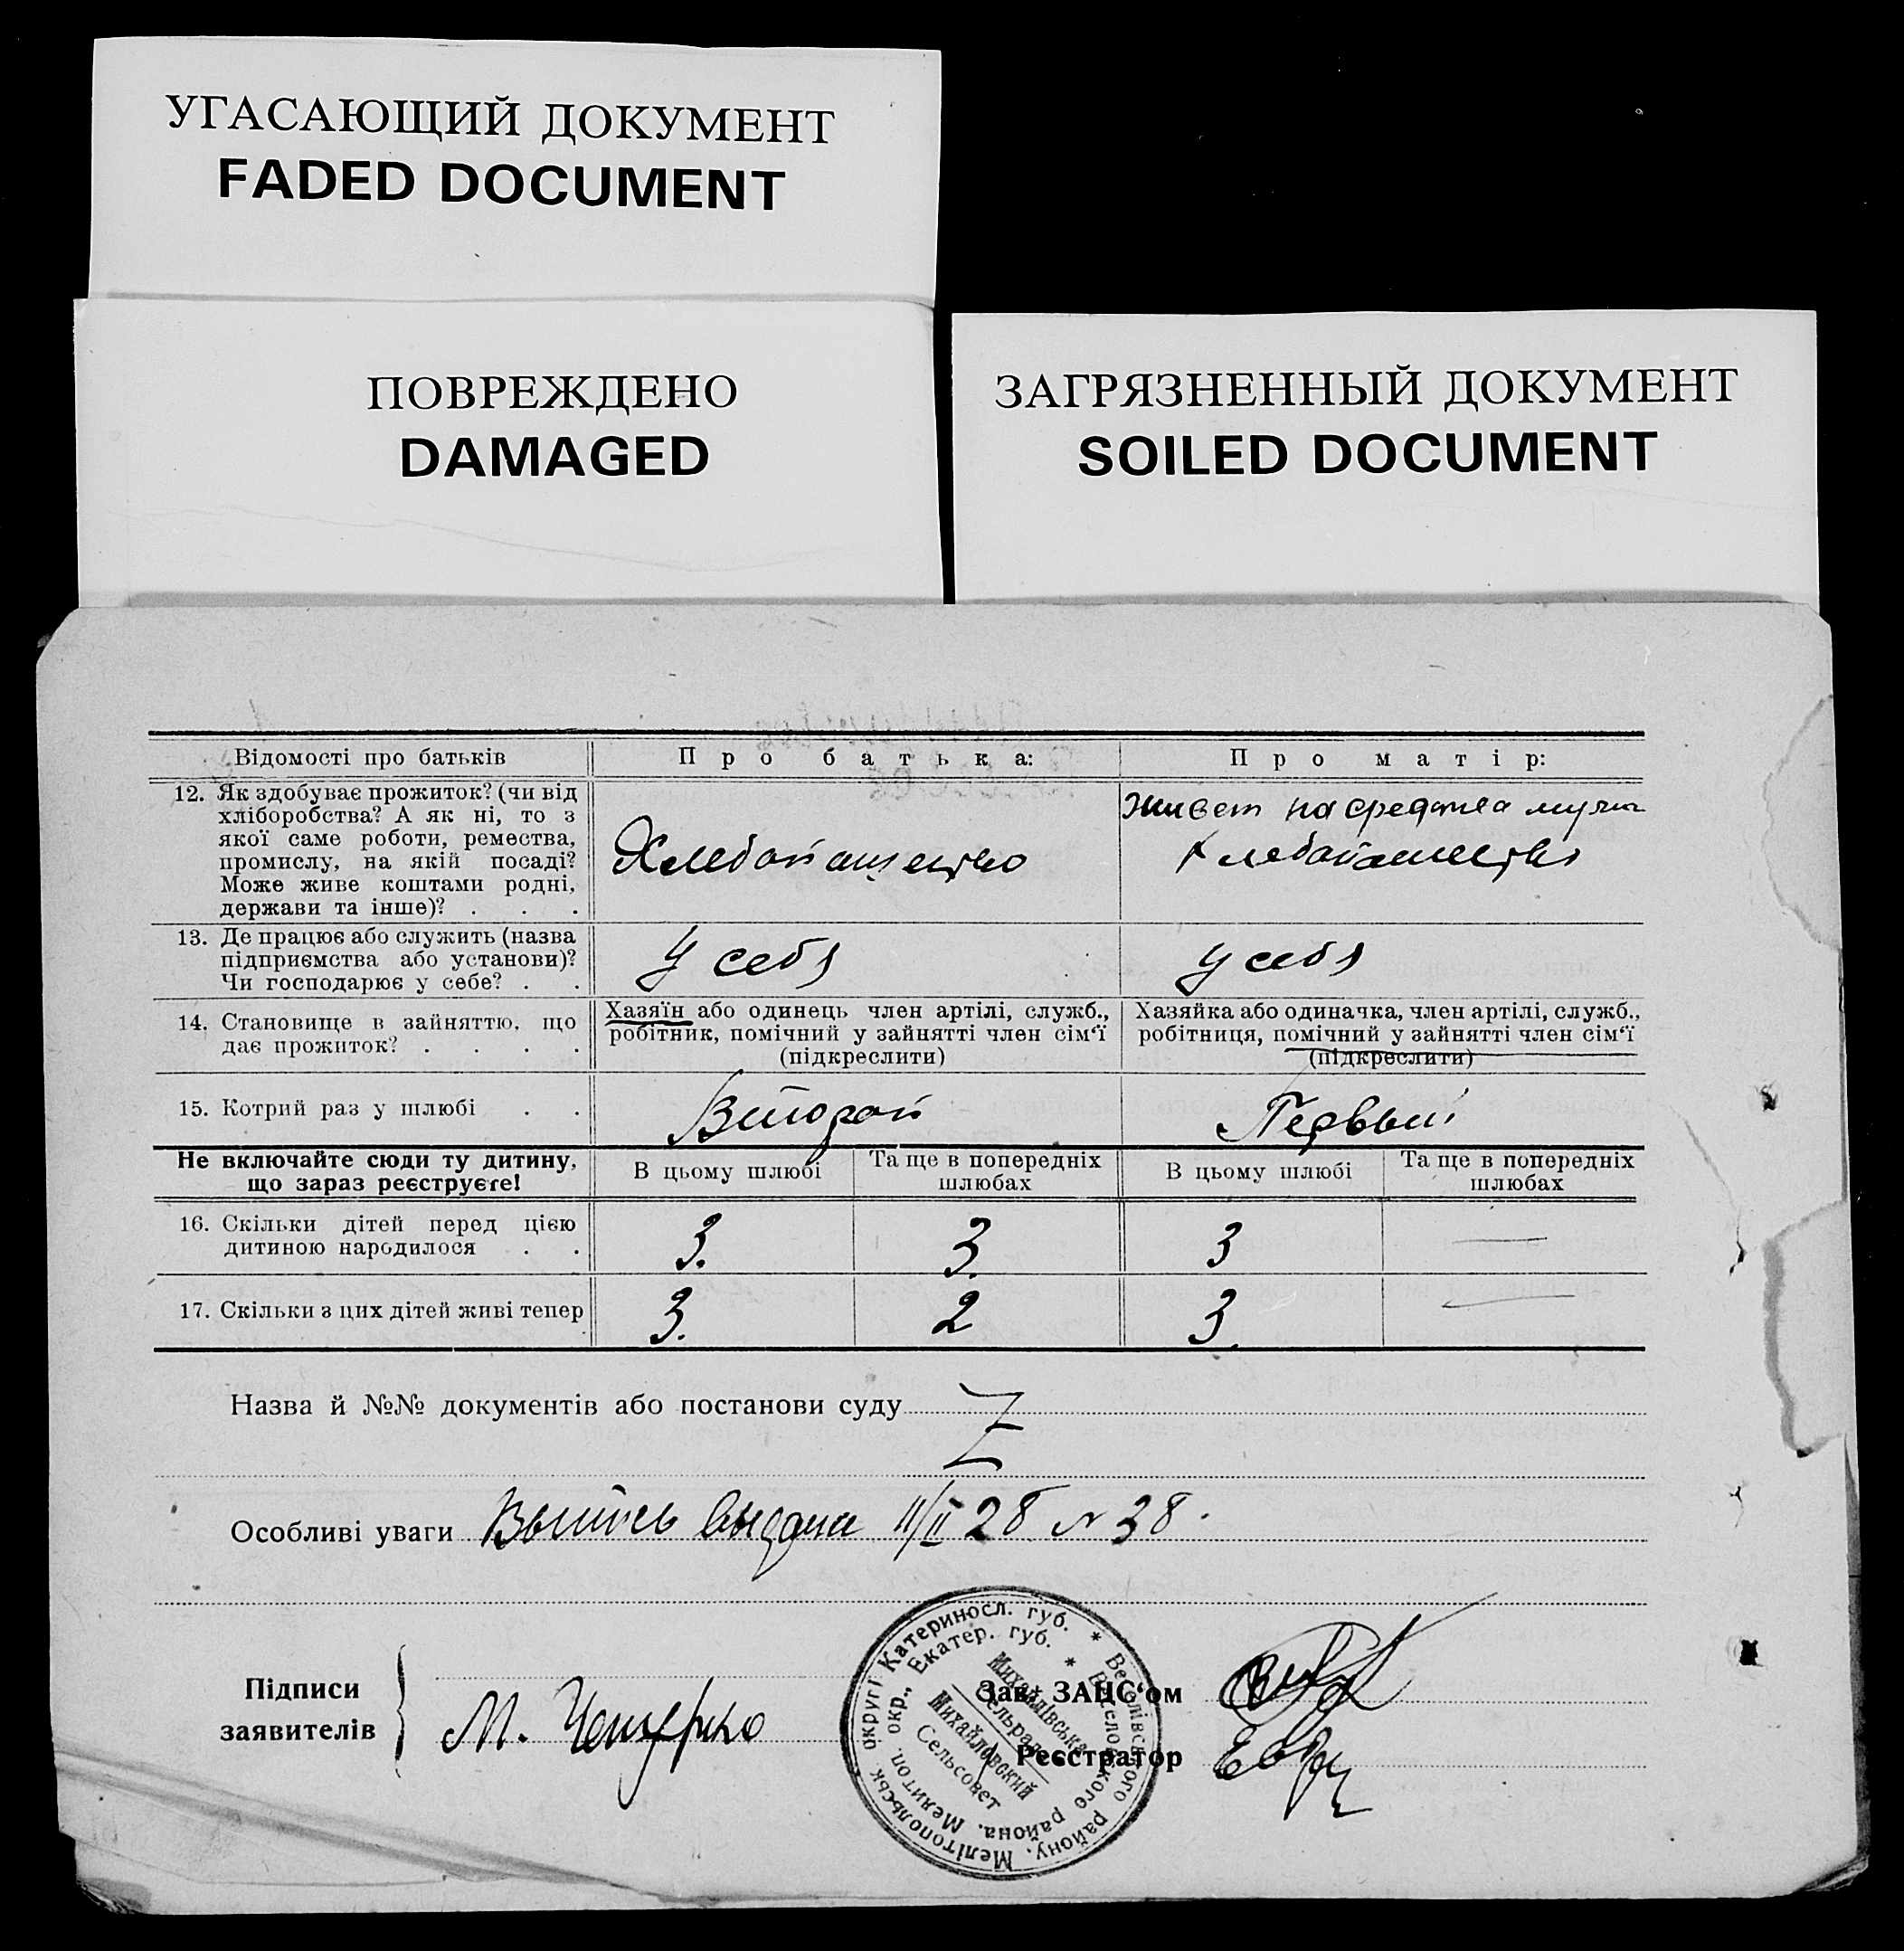 УГАСАЮЩИЙ ДОКУМЕНТ
FADED DOCUMENT
ПОВРЕЖДЕНО
DAMAGED
ЗАГРЯЗНЕННЫЙ ДОКУМЕНТ
SOILED DOCUMENT
Відомості про батьків
Про батька:
Про матір:
12. Як здобуває прожиток? (чи від
хліборобства? А як ні, то з
якої саме роботи, ремества,
промислу, на якій посаді?
Може живе коштами родні,
держави та інше)? . . .
Хлебопашество
Живет на средства мужа
Хлебопашество
13. Де працює або служить (назва
підприємства або установи)?
Чи господарює у себе? . .
У себя
У себя
14. Становище в зайняттю, що
дає прожиток? . . . .
Хазяїн або одинець член артілі, служб.,
робітник, помічний у зайнятті член сім‘ї
(підкреслити)
Хазяйка або одиначка, член артілі, служб.,
робітниця, помічний у зайнятті член сім‘ї
(підкреслити)
15. Котрий раз у шлюбі . .
Второй
Первый
Не включайте сюди ту дитину,
що зараз реєструєте!
В цьому шлюбі
Та ще в попередніх
шлюбах
В цьому шлюбі
Та ще в попередніх
шлюбах
16. Скільки дітей перед цією
дитиною народилося . .
3.
3.
3
—
17. Скільки з цих дітей живі тепер
3.
2
3.
—
Назва й №№ документів або постанови суду
Особливі уваги Выпись выдана 11/II 28 № 38.
Підписи
заявителів
М.
Зав. ЗАЦС‘ом
Реєстратор
Мелітопольськ. округі Катериносл. губ. * Веселівського району.
Мелитоп. окр., Екатер. губ. * Веселовского района.
Михайлівська
Сельрада
Михайловский
Сельсовет